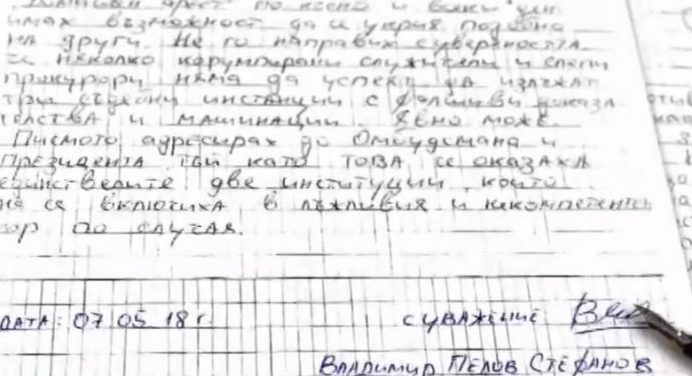 Домашен арест по късно и всеки ден
имах възможност да се укрия подобно
на други. Не го направих с увереността
че няколко корумпирани служители и
прокурори няма да успеят да излъжат
три съдебни инстанции с фалшиви доказа
телства и машинации. Явно може.
Писмото адресирах до Омбудсмана и
Президента тъй като това се оказаха
единствените две институции които
не се включиха в лъжливия и некомпетентен
хор по случая.
ДАТА: 07 05 18 г.
С УВАЖЕНИЕ
ВЛАДИМИР ПЕЛОВ СТЕФАНОВ